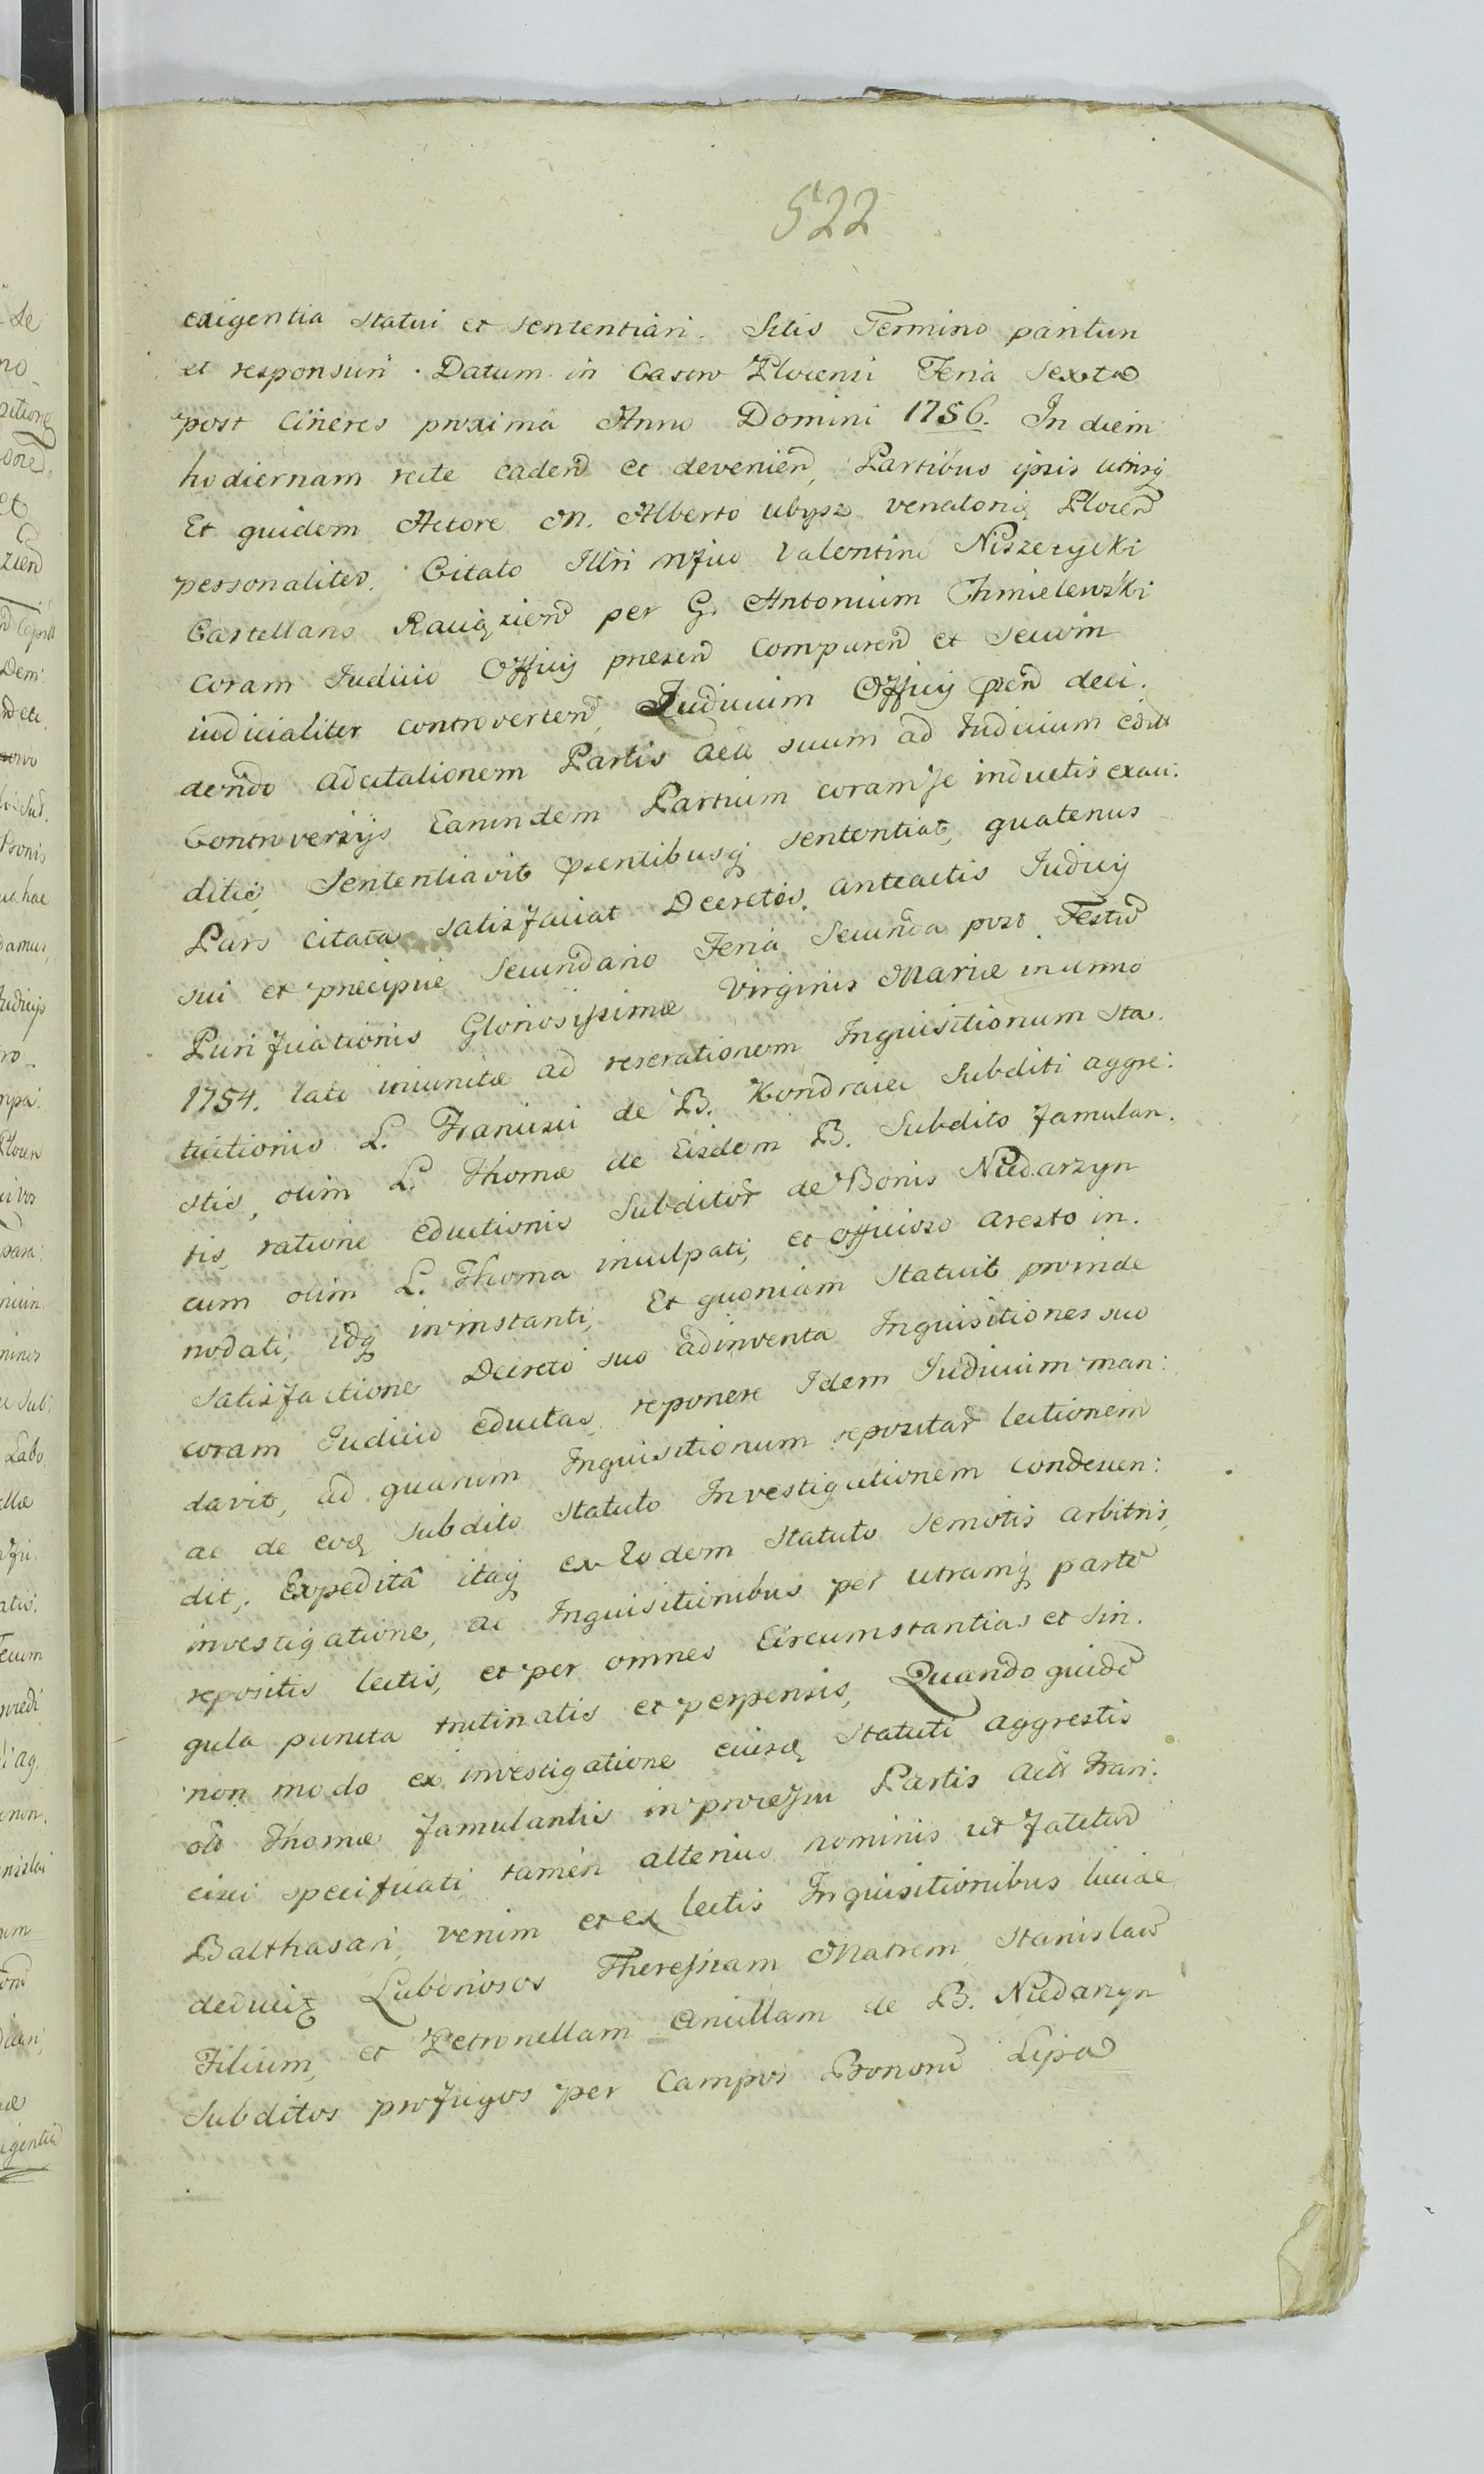 522
exigentia statui et sententiari. Sitis Termino parituri
et responsuri. Datum in Castro Plocensi Feria Sexta
post Cineres proxima Anno Domini 1756. In diem
hodiernam recte caden̄ et devenien̄, Partibus ipsis utrisq
Et quidem Actore M. Alberto Ubysz venatorio Plocen̄
personaliter. Citato Illri Mfico Valentino Niszczycki
Castellano Raciązien̄ per G. Antonium Chmielewski
coram Iudicio Officij presen̄ comparen̄ et Secum
iudicialiter controverten̄, Iudicium Officij pn̄ deci.
dendo adcitationem Partis Acta suum ad Iudicium
Controversijs Earundem Partium coram se inductis exau:
ditis, Sententiavit psentibusq sententiat, quatenus
Pars citata satisfaciat Decretis anteactis Iudicij
sui et precipue Secundario Feria Secunda post Festū
Purificationis Gloriosissimæ Virginis Mariæ in anno
1754. lato iniunctæ ad reserationem Inquisitionum Sta.
tuitionis L. Francisci de B. Kondraiec Subditi aggre:
stis, olim L. Thomæ de Eisdem B. Subdito famulan.
tis, ratione eductionis Subditor̄ de Bonis Niedarzyn
cum olim L. Thoma inculpati, et officioso aresto in.
nodati, idq in instanti, Et quoniam Statuit proinde
satisfactione Decreto suo adinventa Inquisitiones suo
coram Iudicio eductas, reponere Idem Iudicium man:
davit, ad quarum Inquisitionum repositar̄ lectionem
ac de eoq subdito statuto Investigationem condescen:
dit, Expeditâ itaq ex Eodem Statuto Semotis arbitris,
investigatione, ac Inquisitionibus per utramq partē
repositis lectis, et per omnes Circumstantias et Sin.
gula puncta trutinatis et perpensis, Quando quidē
non modo ex investigatione eiusq Statuti aggrestis
Thomæ famulantis in processu Partis Act Fran:
cisci specificati tamen alterius nominis ut fatetur
Balthasari, verum et ex lectis Inquisitionibus lucide
Laboriosos Theressiam Matrem, Stanislaū
Filium, et Petronellam Ancillam de B. Niedarzyn
Subditos profugos per Campos Bonorū Lipa